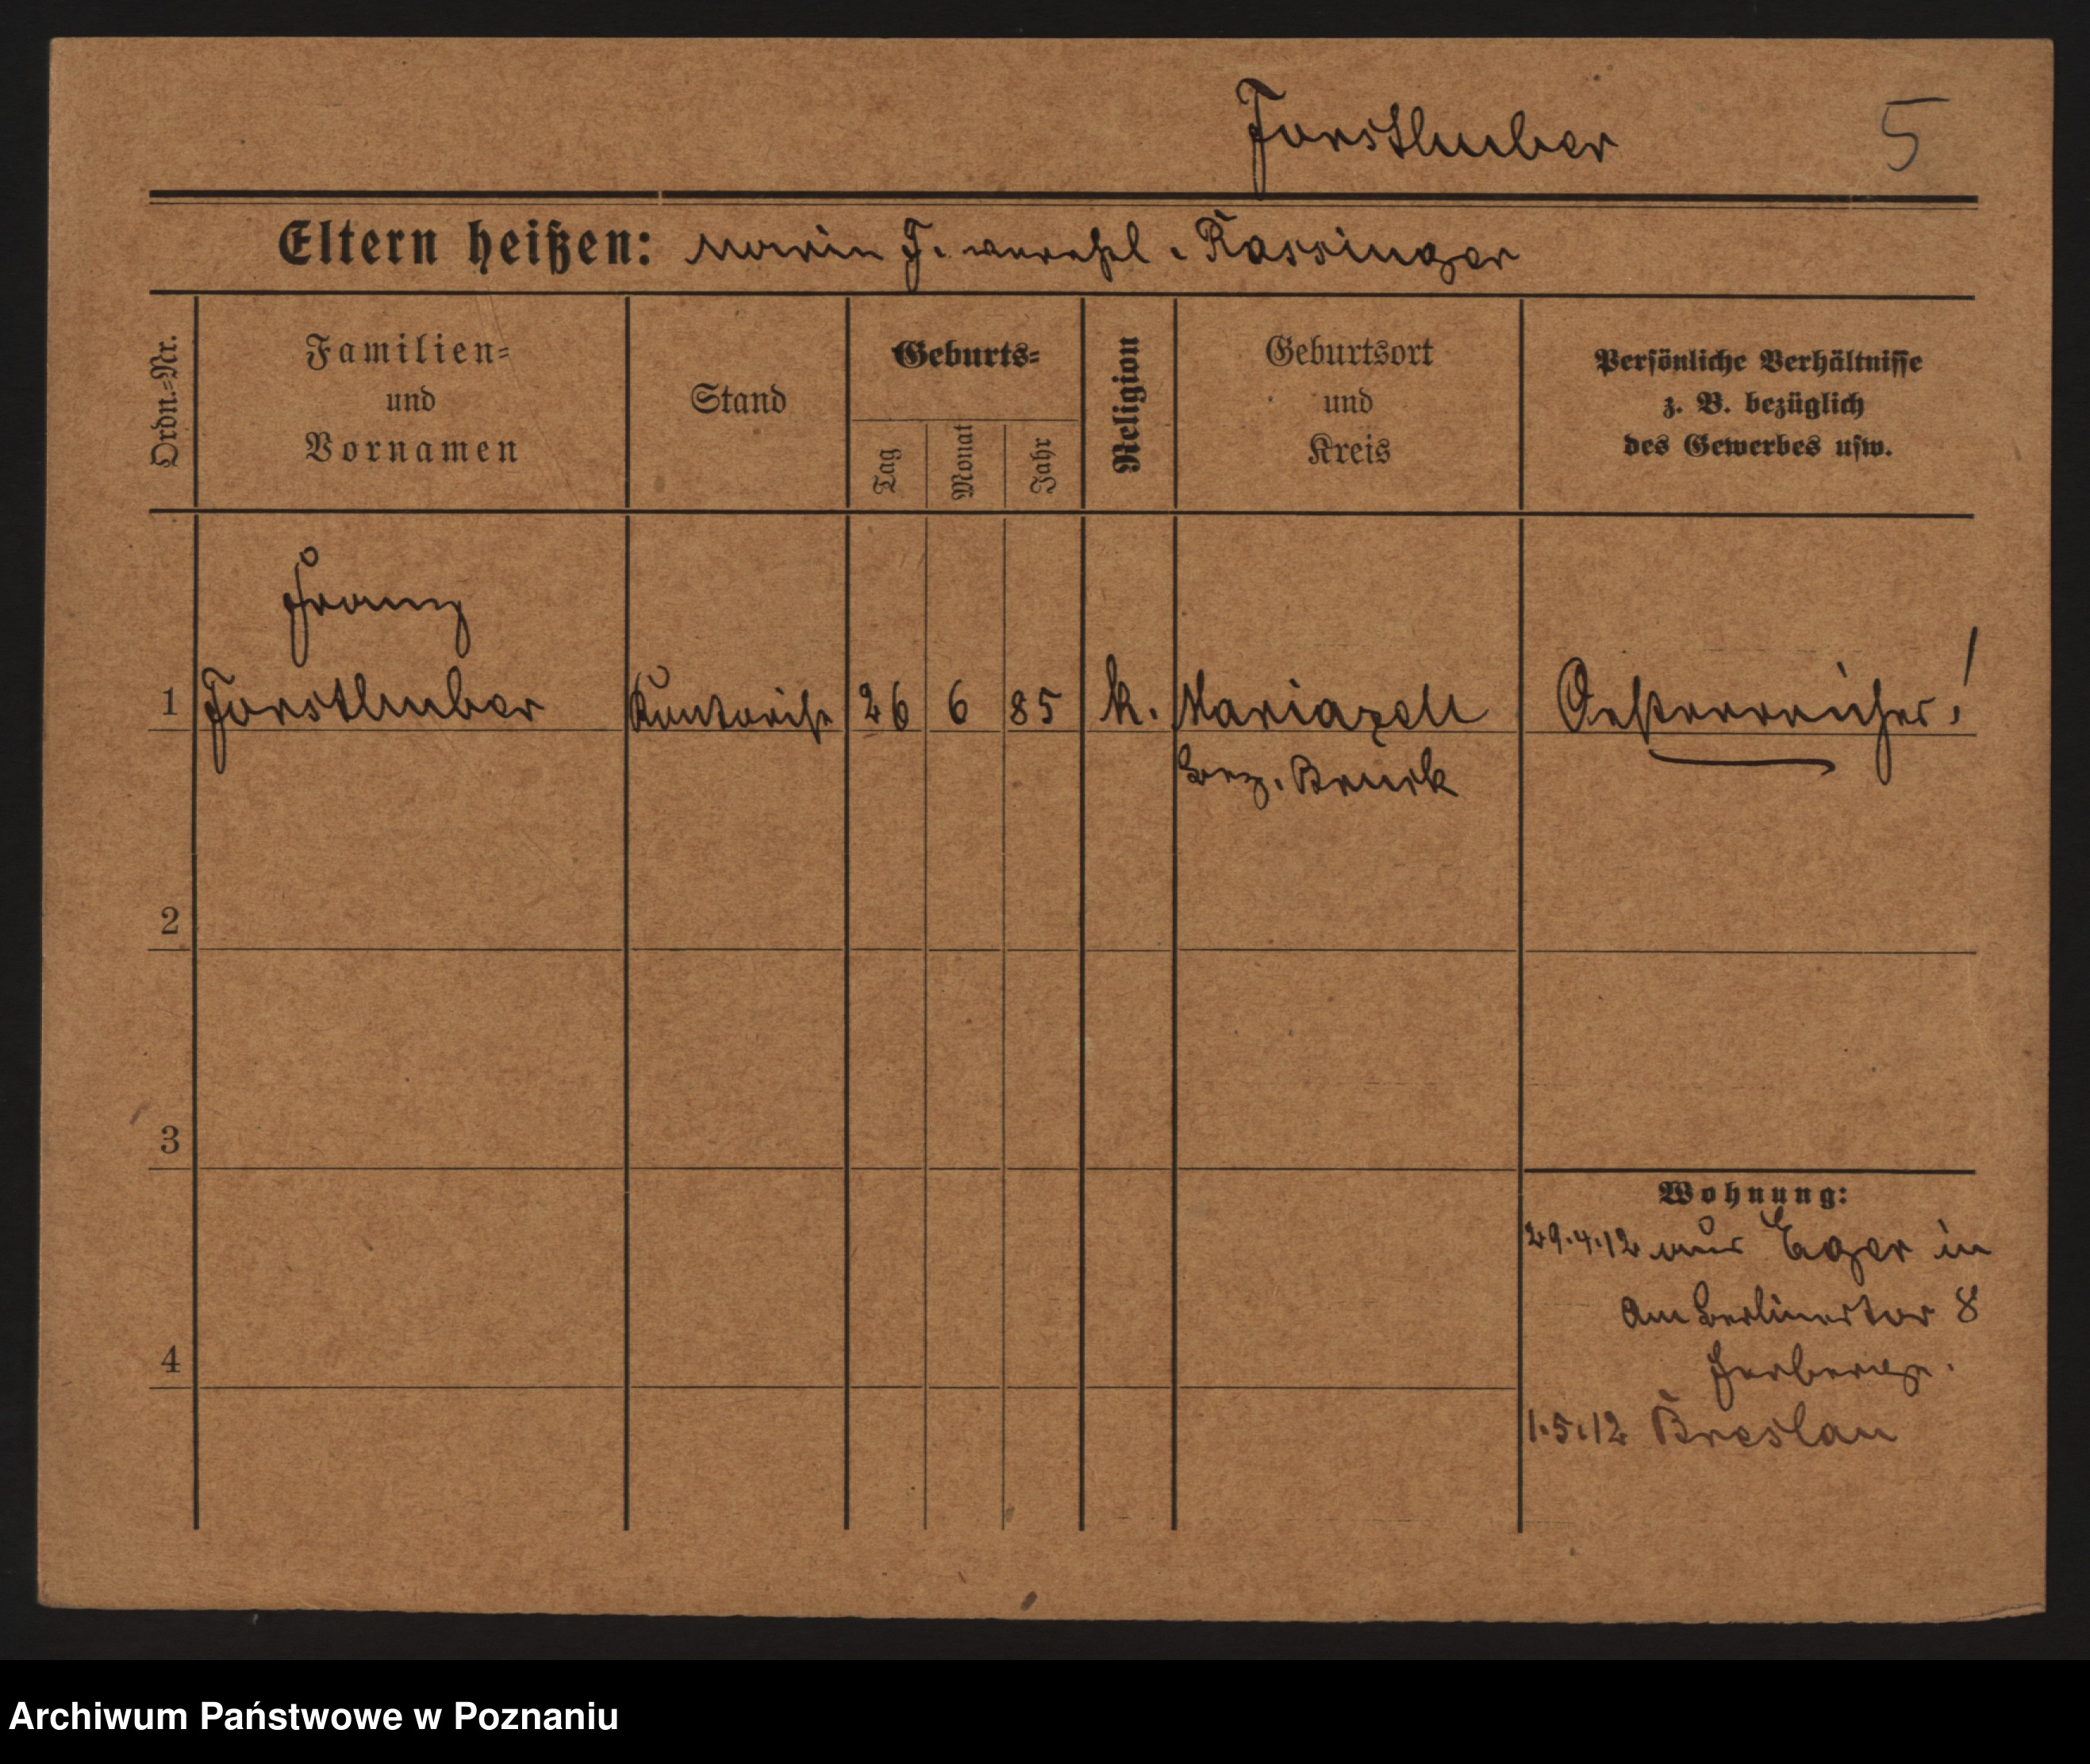 Forsthuber 5
Eltern heißen: Maria F. verehl. Rassinger
Ordn.=Nr.
Familien=
und
Vornamen
Stand
Geburts=
Tag
Monat
Jahr
Religion
Geburtsort
und
Kreis
Persönliche Verhältnisse
z. B. bezüglich
des Gewerbes usw.
Franz
1 Forsthuber Kontorist 26 6 85 k. Mariazell Oesterreicher!
Bez. Bruck
2
3
4
Wohnung:
29.4.12 aus Eger in
Am Berlinertor 8
Herberge.
1.5.12 Breslau
Archiwum Państwowe w Poznaniu